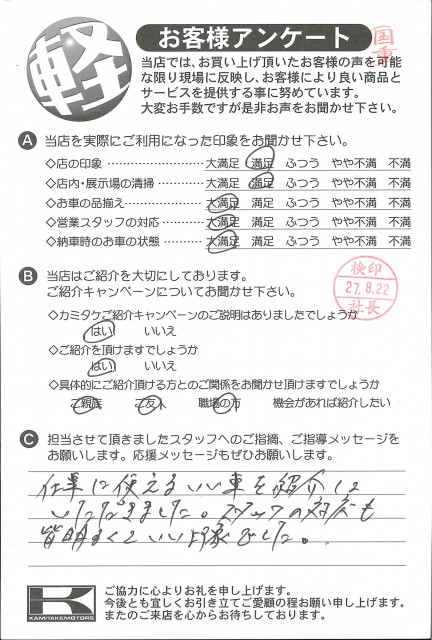 軽
お客様アンケート
国重
当店では、お買い上げ頂いたお客様の声を可能
な限り現場に反映し、お客様により良い商品と
サービスを提供する事に努めています。
大変お手数ですが是非お声をお聞かせ下さい。
A 当店を実際にご利用になった印象をお聞かせ下さい。
◇店の印象 ………………… 大満足 満足 ふつう やや不満 不満
◇店内・展示場の清掃………… 大満足 満足 ふつう やや不満 不満
◇お車の品揃え……………… 大満足 満足 ふつう やや不満 不満
◇営業スタッフの対応 ……… 大満足 満足 ふつう やや不満 不満
◇納車時のお車の状態 ……… 大満足 満足 ふつう やや不満 不満
B 当店はご紹介を大切にしてあります。
ご紹介キャンペーンについてお聞かせ下さい。
検印
27.8.22
社長
◇カミタケご紹介キャンペーンのご説明はありましたでしょうか
はい いいえ
◇ご紹介を頂けますでしょうか
はい いいえ
◇具体的にご紹介頂ける方とのご関係をお聞かせ頂けますでしょうか
ご親族 ご友人 職場の方 機会があれば紹介したい
C 担当させて頂きましたスタッフへのご指摘、ご指導メッセージを
お願いします。応援メッセージもぜひお願いします。
仕事に使えるいい車を紹介して
いただきました。スタッフの対応も
皆明るくていい印象でした。
K
KAMITAKEMOTORS
ご協力に心よりお礼を申し上げます。
今後とも宜しくお引き立てご愛顧の程お願い申し上げます。
またのご来店を心からお待ちしております。